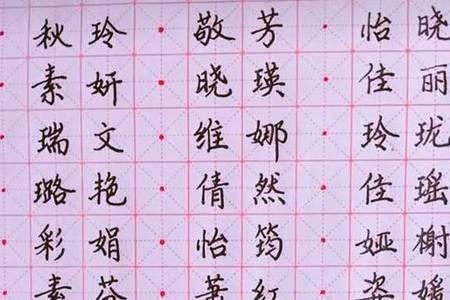 秋玲 敬芳 怡晓
素妍 晓瑛 佳丽
瑞文 维娜 玲珑
璐艳 倩然 佳瑶
彩娟 怡筠 娅榭
素芬 红 姿媛